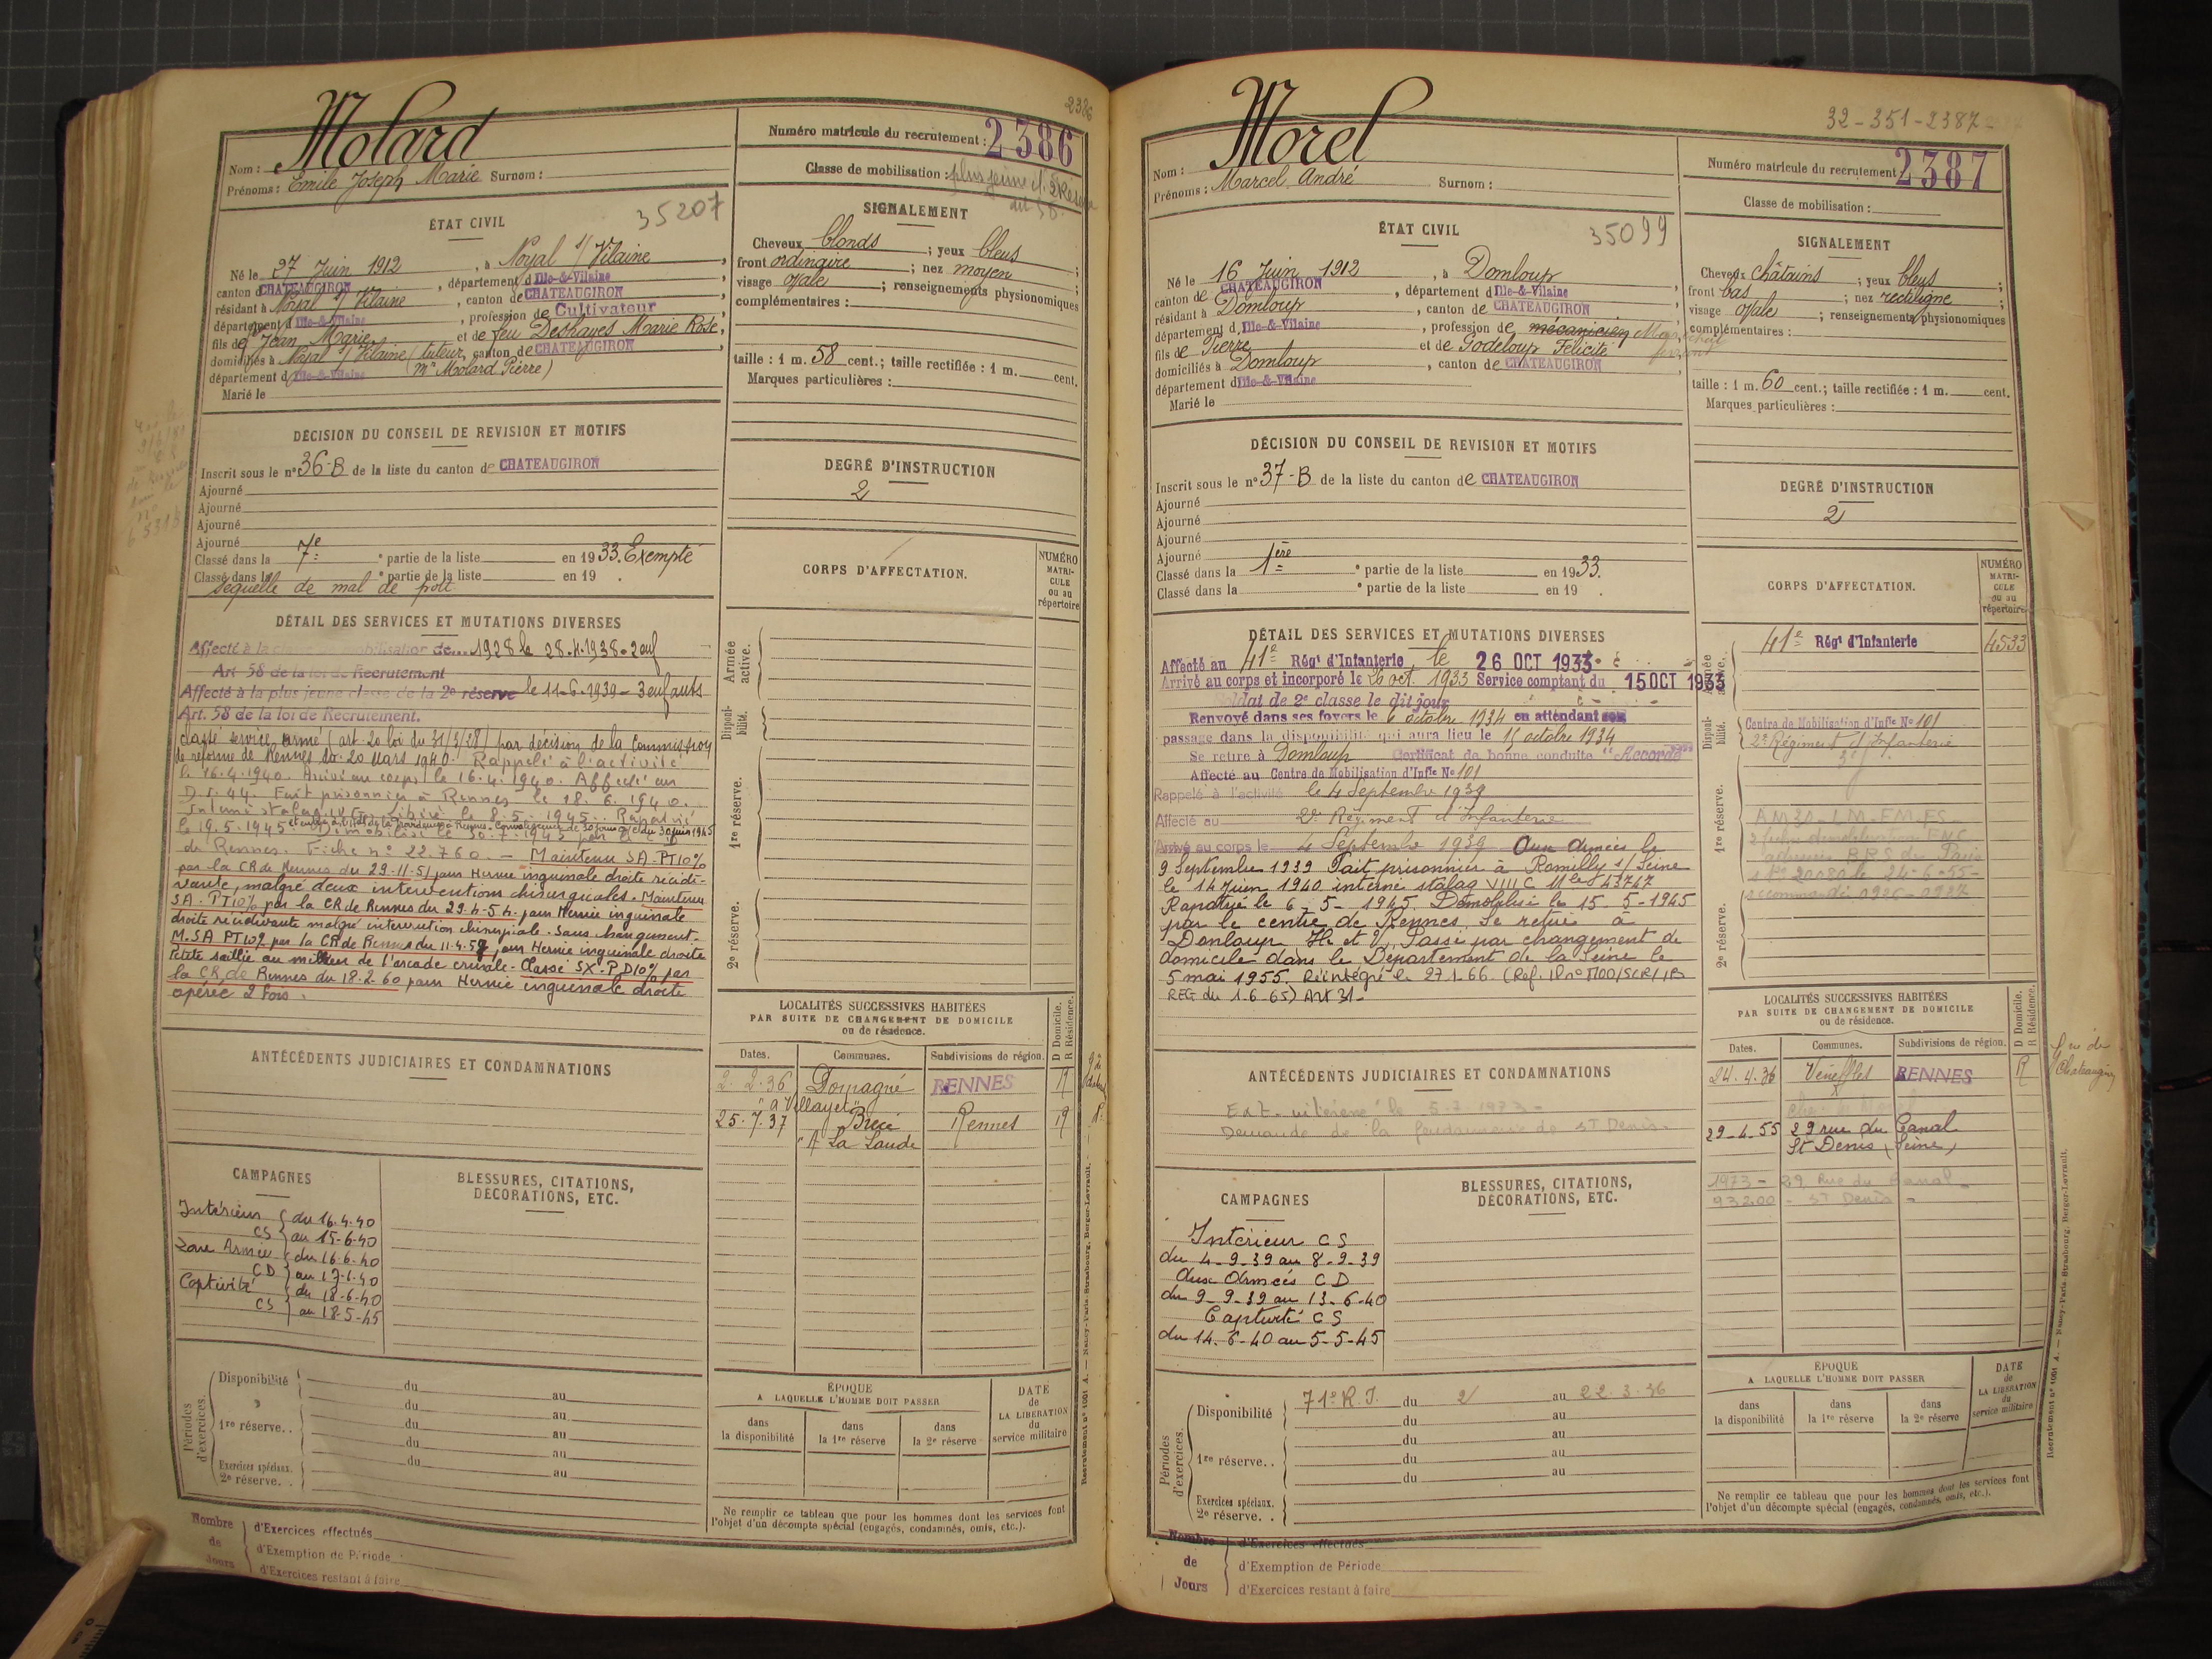 2386
Nom : Molard
Prénoms : Emile Joseph Marie Surnom :
Numéro matricule du recrutement : 2386
Classe de mobilisation : plus jeune cl. 2e Rés
art 58.
ÉTAT CIVIL
35207
Né le 27 Juin 1912, à Noyal s/ Vilaine,
canton de CHATEAUGIRON, département d'Ille-&-Vilaine
résidant à Noyal s/ Vilaine, canton de CHATEAUGIRON,
département d'Ille-&-Vilaine, profession de Cultivateur
fils de Jean Marie et de feu Deshayes Marie Rose,
domiciliés à Noyal s/ Vilaine (tuteur, canton de CHATEAUGIRON,
département d'Ille-&-Vilaine (Mr Molard Pierre)
Marié le
SIGNALEMENT
Cheveux blonds ; yeux bleus ;
front ordinaire ; nez moyen ;
visage ovale ; renseignements physionomiques
complémentaires :
taille : 1 m. 58 cent.; taille rectifiée : 1 m. cent.
Marques particulières :
DÉCISION DU CONSEIL DE REVISION ET MOTIFS
Inscrit sous le n° 36-B de la liste du canton de CHATEAUGIRON
Ajourné
Ajourné
Ajourné
Ajourné
Classé dans la 7e partie de la liste en 1933. Exempté
Classé dans la e partie de la liste en 19 .
séquelle de mal de pott
DEGRÉ D'INSTRUCTION
2
DÉTAIL DES SERVICES ET MUTATIONS DIVERSES
Affecté à la classe de mobilisation de 1928 le 28.4.1938-2 enf
Art 58 de la loi de Recrutement
Affecté à la plus jeune classe de la 2e réserve le 11-6-1939-3 enfants
Art. 58 de la loi de Recrutement.
Classé service armé (art 20 loi du 31/3/28) par décision de la Commission
de réforme de Rennes du 20 Mars 1940. Rappelé à l'activité
le 16.4.1940. Arrivé au corps le 16.4.1940. Affecté au
D.I. 44. Fait prisonnier à Rennes le 18.6.1940.
Interné stalag libéré le 8-5-1945. Rapatrié
le 19.5.1945 Convalescence de 30 jours du 30 juin 1945
Démobilisé le 30-7-1945 par le C
de Rennes. Fiche n° 22.760. - Maintenu SA-PT10%
par la CR de Rennes du 29-11-51 pour Hernie inguinale droite récidi-
vante, malgré deux interventions chirurgicales. Maintenu
SA. PT10% par la CR de Rennes du 29-4-54. pour Hernie inguinale
droite récidivante malgré intervention chirurgicale. Sans changement.
M.SA PT10% par la CR de Rennes du 11.4.57, pour Hernie inguinale droite
Petite saillie au milieu de l'arcade crurale. Classé SX-PD10% par
la CR de Rennes du 18-2-60 pour Hernie inguinale droite
opérée 2 fois.
CORPS D'AFFECTATION.
NUMÉRO MATRICULE ou au répertoire
Armée active.
Disponibilité.
1re réserve.
2e réserve.
ANTÉCÉDENTS JUDICIAIRES ET CONDAMNATIONS
LOCALITÉS SUCCESSIVES HABITÉES
PAR SUITE DE CHANGEMENT DE DOMICILE
ou de résidence.
Dates. Communes. Subdivisions de région. D Domicile. R Résidence.
2.2.36 Domagné RENNES R
"a Villayet"
25.7.37 Brécé Rennes R
"A La Lande
CAMPAGNES
Intérieur CS du 16.4.40 au 15-6-40
Zone Armée CD du 16-6-40 au 17-6-40
Captivité CS du 18-6-40 au 18-5-45
BLESSURES, CITATIONS,
DÉCORATIONS, ETC.
Périodes d'exercices.
Disponibilité du au
1re réserve. . du au
Exercices spéciaux.
2e réserve. . du au
ÉPOQUE
A LAQUELLE L'HOMME DOIT PASSER
dans la disponibilité
dans la 1re réserve
dans la 2e réserve
DATE de LA LIBÉRATION du service militaire
Ne remplir ce tableau que pour les hommes dont les services font
l'objet d'un décompte spécial (engagés, condamnés, omis, etc.).
Recrutement n° 1061 A. — Nancy-Paris-Strasbourg, Berger-Levrault.
Nombre de Jours
d'Exercices effectués
d'Exemption de Période
d'Exercices restant à faire
32-351-2387-
Nom : Morel
Prénoms : Marcel André Surnom :
Numéro matricule du recrutement : 2387
Classe de mobilisation :
ÉTAT CIVIL
35099
Né le 16 Juin 1912, à Domloup
canton de CHATEAUGIRON, département d'Ille-&-Vilaine
résidant à Domloup, canton de CHATEAUGIRON
département d'Ille-&-Vilaine, profession de mécanicien Maréchal ferrant
fils de Pierre et de Godeloup Félicité
domiciliés à Domloup, canton de CHATEAUGIRON,
département d'Ille-&-Vilaine
Marié le
SIGNALEMENT
Cheveux châtains ; yeux bleus ;
front bas ; nez rectiligne ;
visage ovale ; renseignements physionomiques
complémentaires :
taille : 1 m. 60 cent.; taille rectifiée : 1 m. cent.
Marques particulières :
DÉCISION DU CONSEIL DE REVISION ET MOTIFS
Inscrit sous le n° 37-B de la liste du canton de CHATEAUGIRON
Ajourné
Ajourné
Ajourné
Ajourné
Classé dans la 1ère partie de la liste en 1933.
Classé dans la e partie de la liste en 19 .
DEGRÉ D'INSTRUCTION
2
DÉTAIL DES SERVICES ET MUTATIONS DIVERSES
Affecté au 41e Régt d'Infanterie, le 26 OCT 1933
Arrivé au corps et incorporé le 26 oct. 1933 Service comptant du 15 OCT 1933
Soldat de 2e classe le dit jour
Renvoyé dans ses foyers le 6 octobre 1934 en attendant son
passage dans la disponibilité qui aura lieu le 15 octobre 1934
Se retire à Domloup Certificat de bonne conduite "Accordé"
Affecté au Centre de Mobilisation d'Infie N° 101
Rappelé à l'activité le 4 Septembre 1939
Affecté au 2e Régiment d'Infanterie
Arrivé au corps le 4 Septembre 1939 Aux Armées le
9 Septembre 1939 Fait prisonnier à Romilly s/ Seine
le 14 Juin 1940 interné stalag VIII C Mle 43747
Rapatrié le 6-5-1945 Démobilisé le 15-5-1945
par le centre de Rennes. Se retire à
Domloup Ille et V. Passé par changement de
domicile dans le Département de la Seine le
5 mai 1955. Réintégré le 27.1.66 (Réf. n° 1700/SCR/1B
REG du 1.6.65) Art 31-
CORPS D'AFFECTATION.
NUMÉRO MATRICULE ou au répertoire
Armée active. 41e Régt d'Infanterie 4533
Disponibilité. Centre de Mobilisation d'Infie N° 101
2e Régiment d'Infanterie
1re réserve.
2e réserve.
ANTÉCÉDENTS JUDICIAIRES ET CONDAMNATIONS
le 5-7 1973-
Demande de la gendarmerie de ST Denis-
LOCALITÉS SUCCESSIVES HABITÉES
PAR SUITE DE CHANGEMENT DE DOMICILE
ou de résidence.
Dates. Communes. Subdivisions de région. D Domicile. R Résidence.
24.4.36 Veneffles RENNES R
29-4-55 29 rue du Canal
St Denis (Seine)
1973- 29 Rue du Canal-
93200- ST Denis-
CAMPAGNES
Intérieur CS
du 4-9-39 au 8-9-39
Aux Armées CD
du 9-9-39 au 13-6-40
Captivité CS
du 14-6-40 au 5-5-45
BLESSURES, CITATIONS,
DÉCORATIONS, ETC.
Périodes d'exercices.
Disponibilité 71e R.I. du 2 au 22-3-36
1re réserve. . du au
Exercices spéciaux.
2e réserve. .
ÉPOQUE
A LAQUELLE L'HOMME DOIT PASSER
dans la disponibilité
dans la 1re réserve
dans la 2e réserve
DATE de LA LIBÉRATION du service militaire
Ne remplir ce tableau que pour les hommes dont les services font
l'objet d'un décompte spécial (engagés, condamnés, omis, etc.).
Recrutement n° 1061 A. — Nancy-Paris-Strasbourg, Berger-Levrault.
Nombre de Jours
d'Exercices effectués
d'Exemption de Période
d'Exercices restant à faire